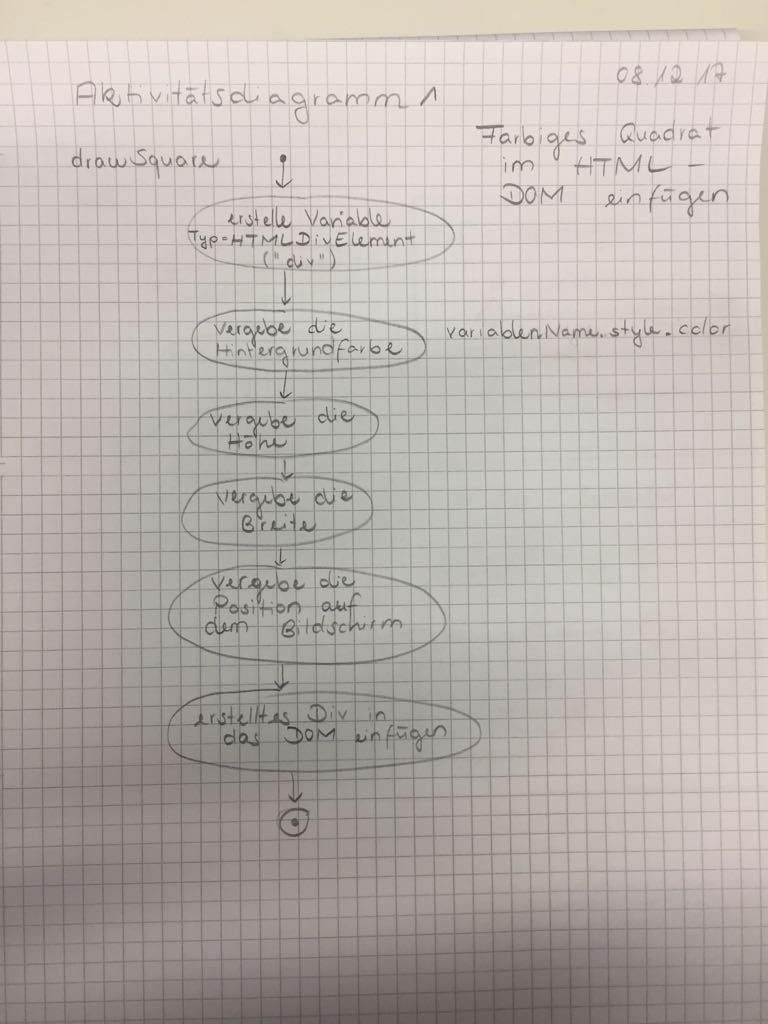 08.12.17
Aktivitätsdiagramm 1
Farbiges Quadrat
im HTML -
DOM einfügen
drawSquare
erstelle Variable
Typ=HTMLDivElement
("div")
vergebe die
Hintergrundfarbe
variablenName.style.color
vergebe die
Höhe
vergebe die
Breite
vergebe die
Position auf
dem Bildschirm
erstelltes Div in
das DOM einfügen